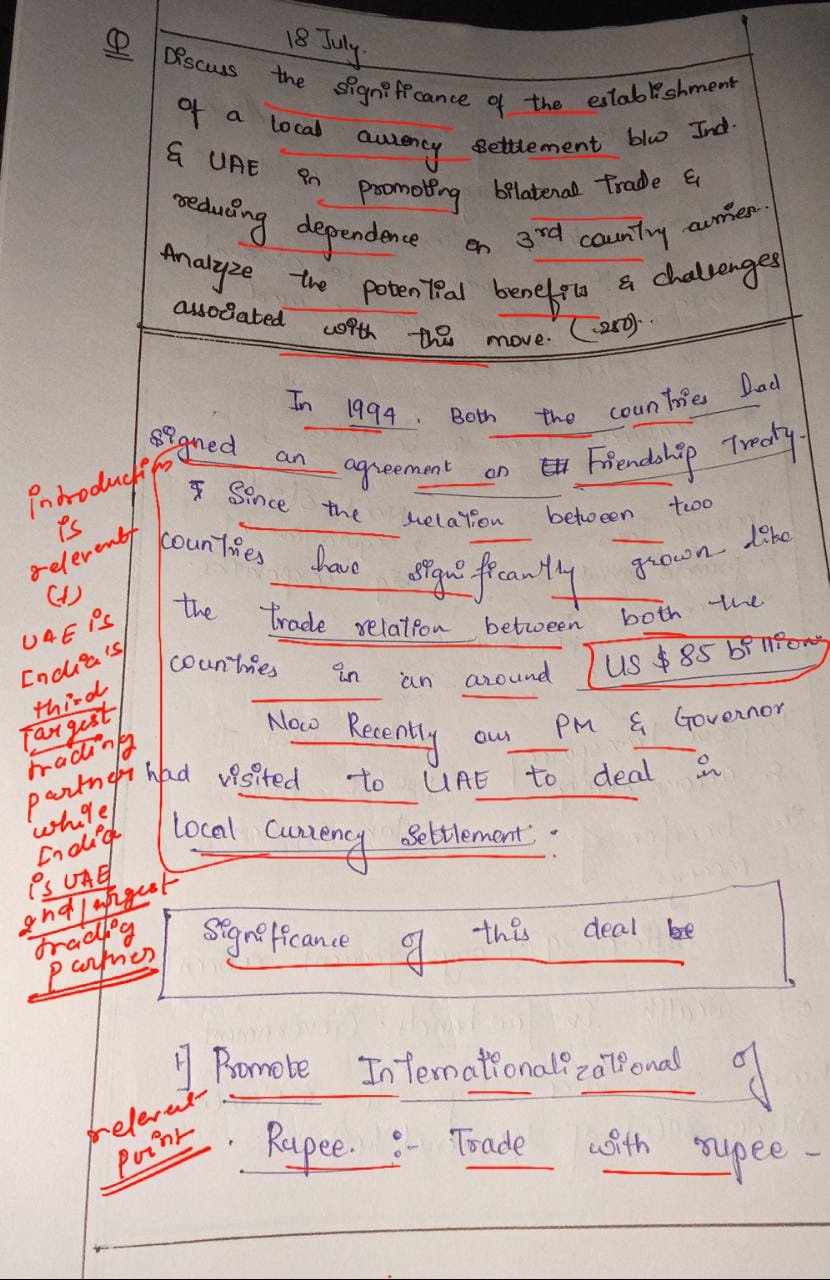 Q
18 July.
Discuss the significance of the establishment
of a local currency settlement b/w Ind.
& UAE in promoting bilateral Trade &
reducing dependence on 3rd country curries..
Analyze the potential benefits & challenges
associated with this move. (250)..
In 1994, Both the countries Dad
signed an agreement on Friendship Treaty.
& Since the relation between two
countries have significantly grown like
the trade relation between both the
countries in an around US $ 85 billion
Now Recently our PM & Governor
had visited to UAE to deal in
Local Currency Settlement.
introduction
is
relevent
(1)
UAE is
India's
third
largest
trading
partner
while
India
is UAE
2nd largest
trading
partner
Significance of this deal
1] Promote Internationalizational of
Rupee. :- Trade with rupee -
relevent
point